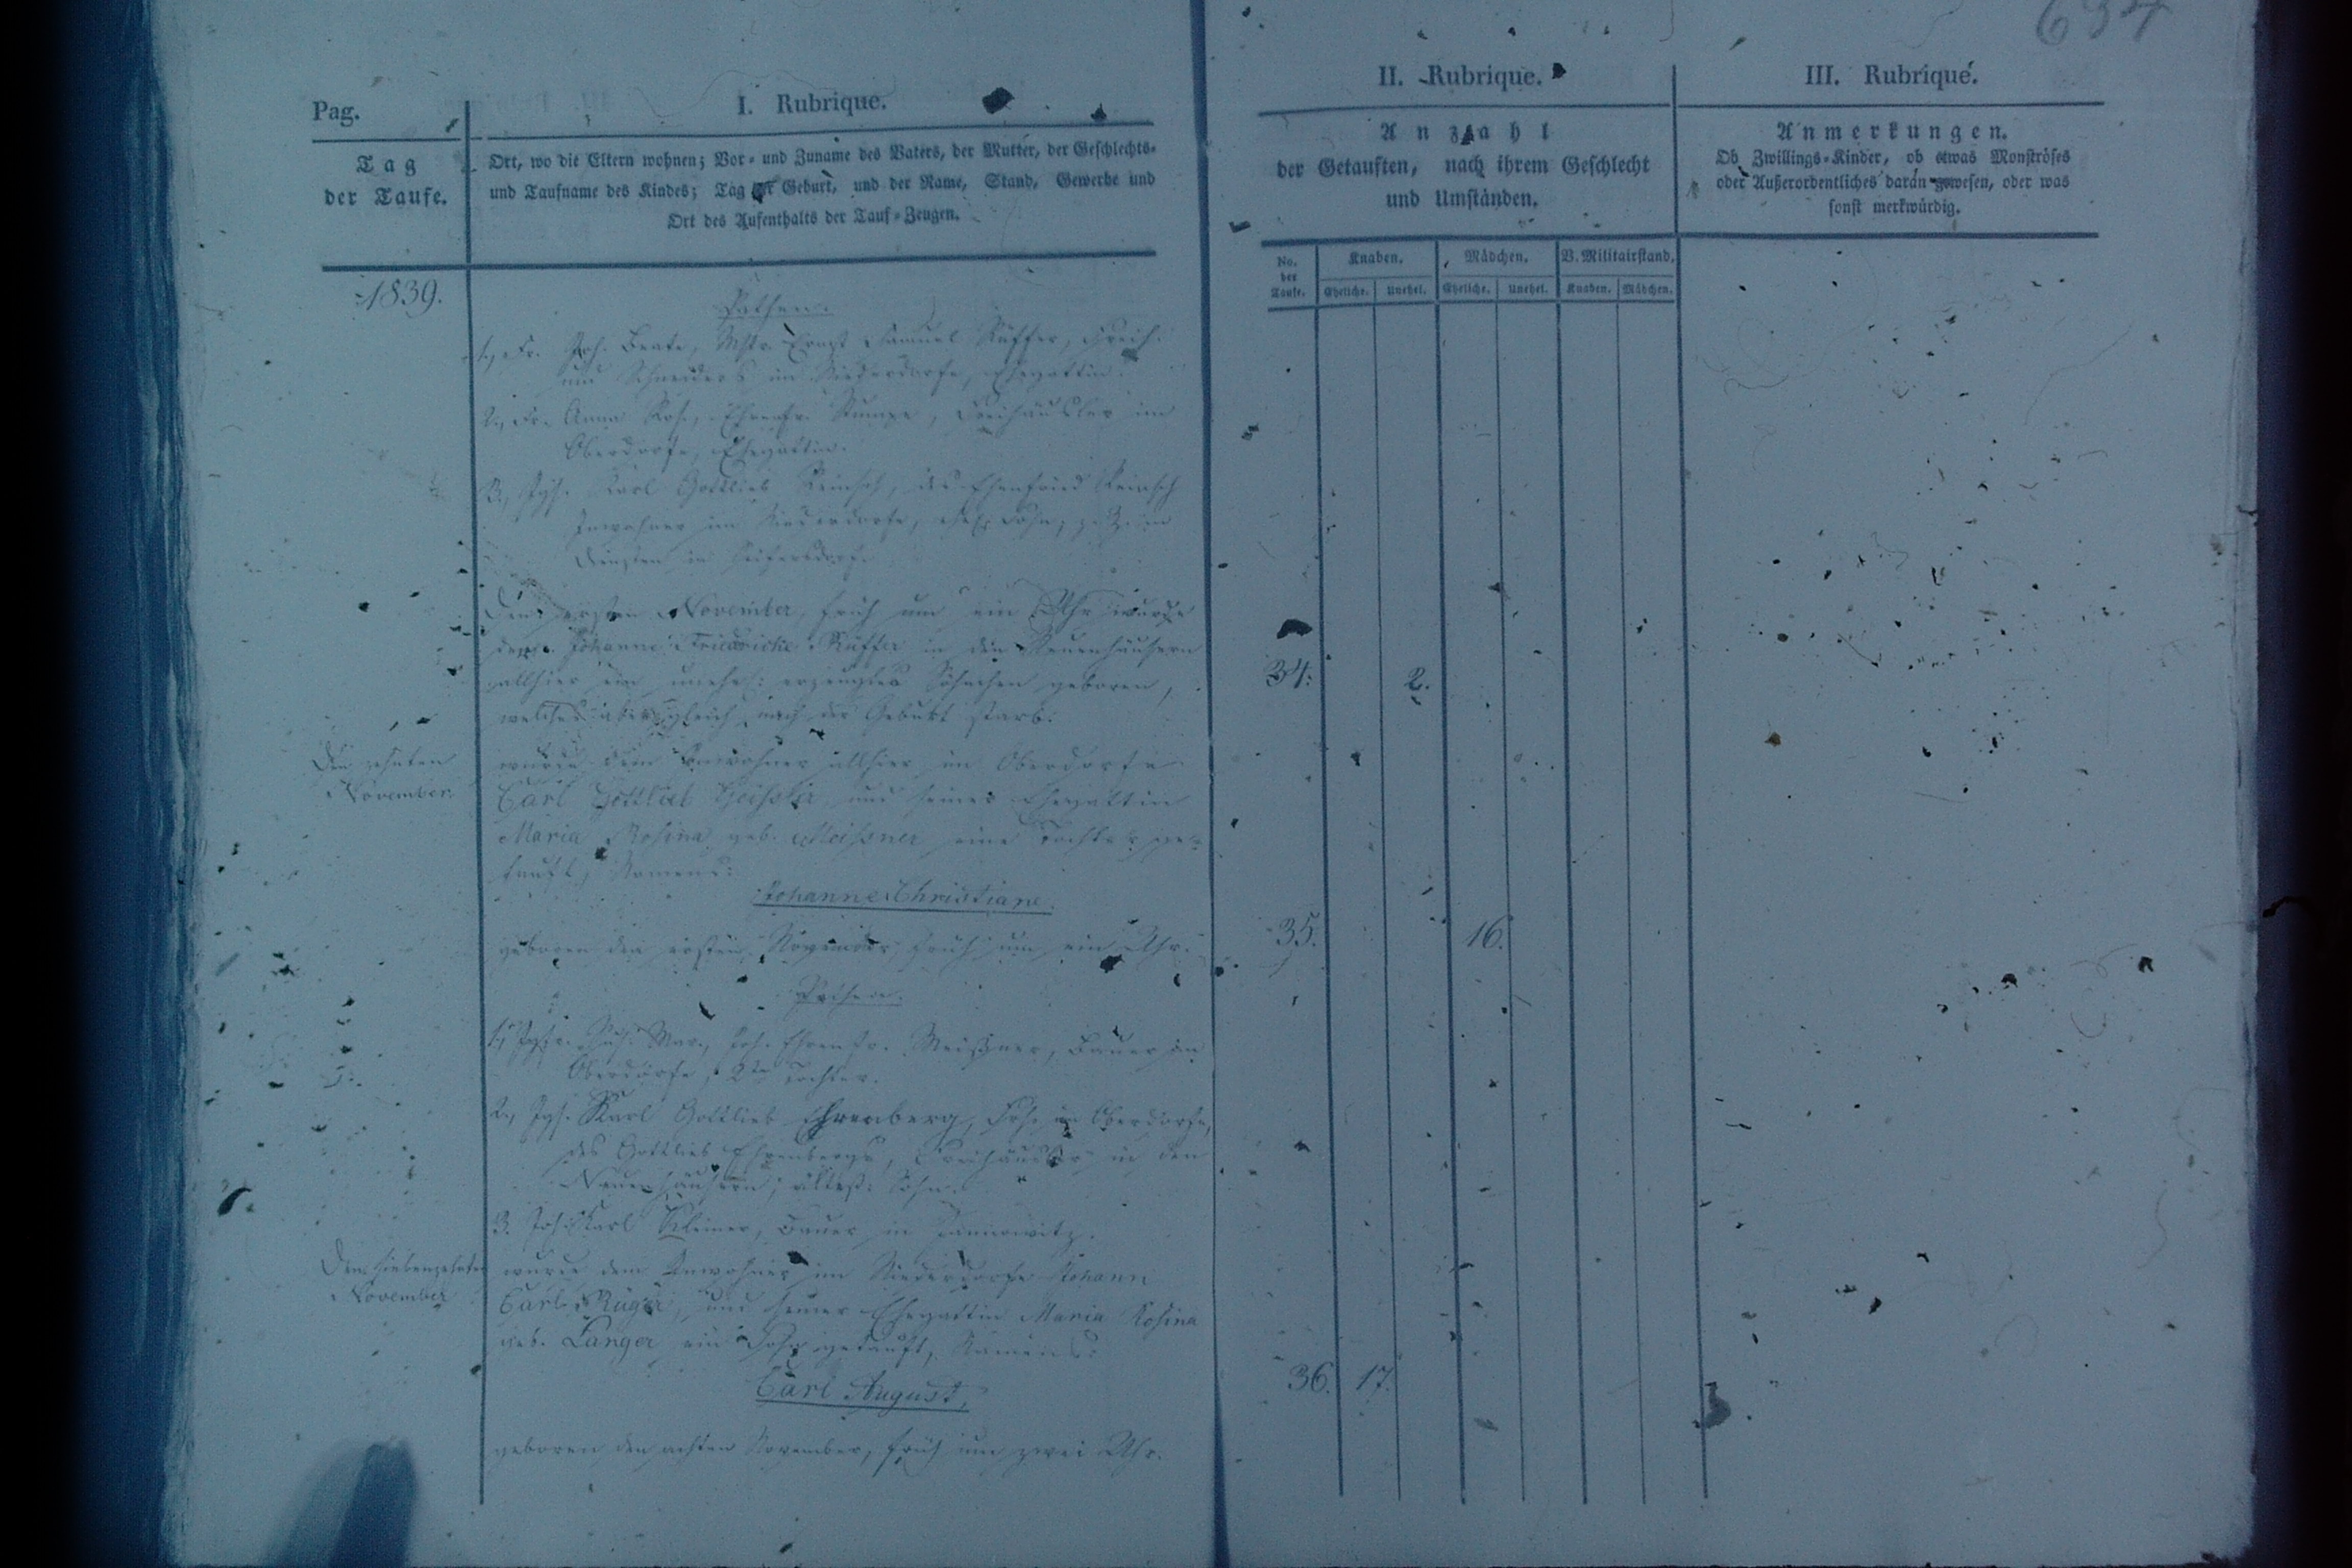 634
Pag.
I. Rubrique.
II. Rubrique.
III. Rubrique.
Tag
der Taufe.
Ort, wo die Eltern wohnen; Vor- und Zuname des Vaters, der Mutter, der Geschlechts-
und Taufname des Kindes; Tag der Geburt, und der Name, Stand, Gewerbe und
Ort des Aufenthalts der Tauf-Zeugen.
Anzahl
der Getauften, nach ihrem Geschlecht
und Umständen.
Anmerkungen.
Ob Zwillings-Kinder, ob etwas Monströses
oder Außerordentliches daran gewesen, oder was
sonst merkwürdig.
No. der Taufe.
Knaben.
Mädchen.
V. Militairstand.
Eheliche. Unehel. Eheliche. Unehel. Knaben. Mädchen.
1839.
Pathen.
1., Fr. Joh. Beate, Mstr. Ernst Samuel Küffer,
und Schneiders im Niederdorfe, Ehegattin.
2., Fr. Anna Ros., Ehrenfr. Rumpe, Freihäusler im
Oberdorfe, Ehegattin.
3., Jgs. Karl Gottlieb Reinsch, des Ehrenfried Reinsch
Inwohner im Niederdorfe, Sohn, z. Z. in
Diensten in Seifersdorf.
Den ersten November, früh um ein Uhr wurde
der Johanne Friedricke Küffer in den Neuenhäusern
allhier ein unehel: erzeugtes Söhnchen geboren,
welches aber gleich nach der Geburt starb.
34. 2.
Den zehnten
November.
wurde dem Inwohner allhier im Oberdorfe
Carl Gottlieb Geissler, und seiner Ehegattin
Maria Rosina geb. Meissner eine Tochter ge-
tauft, Namens:
Johanne Christiane.
geboren den ersten November, früh um ein Uhr.
35. 16.
Pathen.
1., Jgfr. Mar., Joh. Ehrenfr. Meißner, Bauer im
Oberdorfe, 2te Tochter.
2., Jgs. Karl Gottlieb Ehrenberg, im Oberdorfe,
des Gottlieb Ehrenbergs, Freihäusler in den
Neuenhäusern, ältest. Sohn.
3. Joh. Karl Kleiner, Bauer in Tannowitz.
Den siebenzehnten
November
wurde dem Inwohner im Niederdorfe Johann
Carl Rüger, und seiner Ehegattin Maria Rosina
geb. Langer ein Sohn getauft, Namens:
Carl August,
36. 17.
geboren den achten November, früh um zwei Uhr.